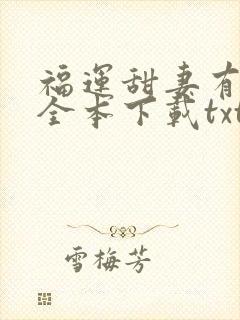 福運甜妻有
全本下載txt
雪梅芳